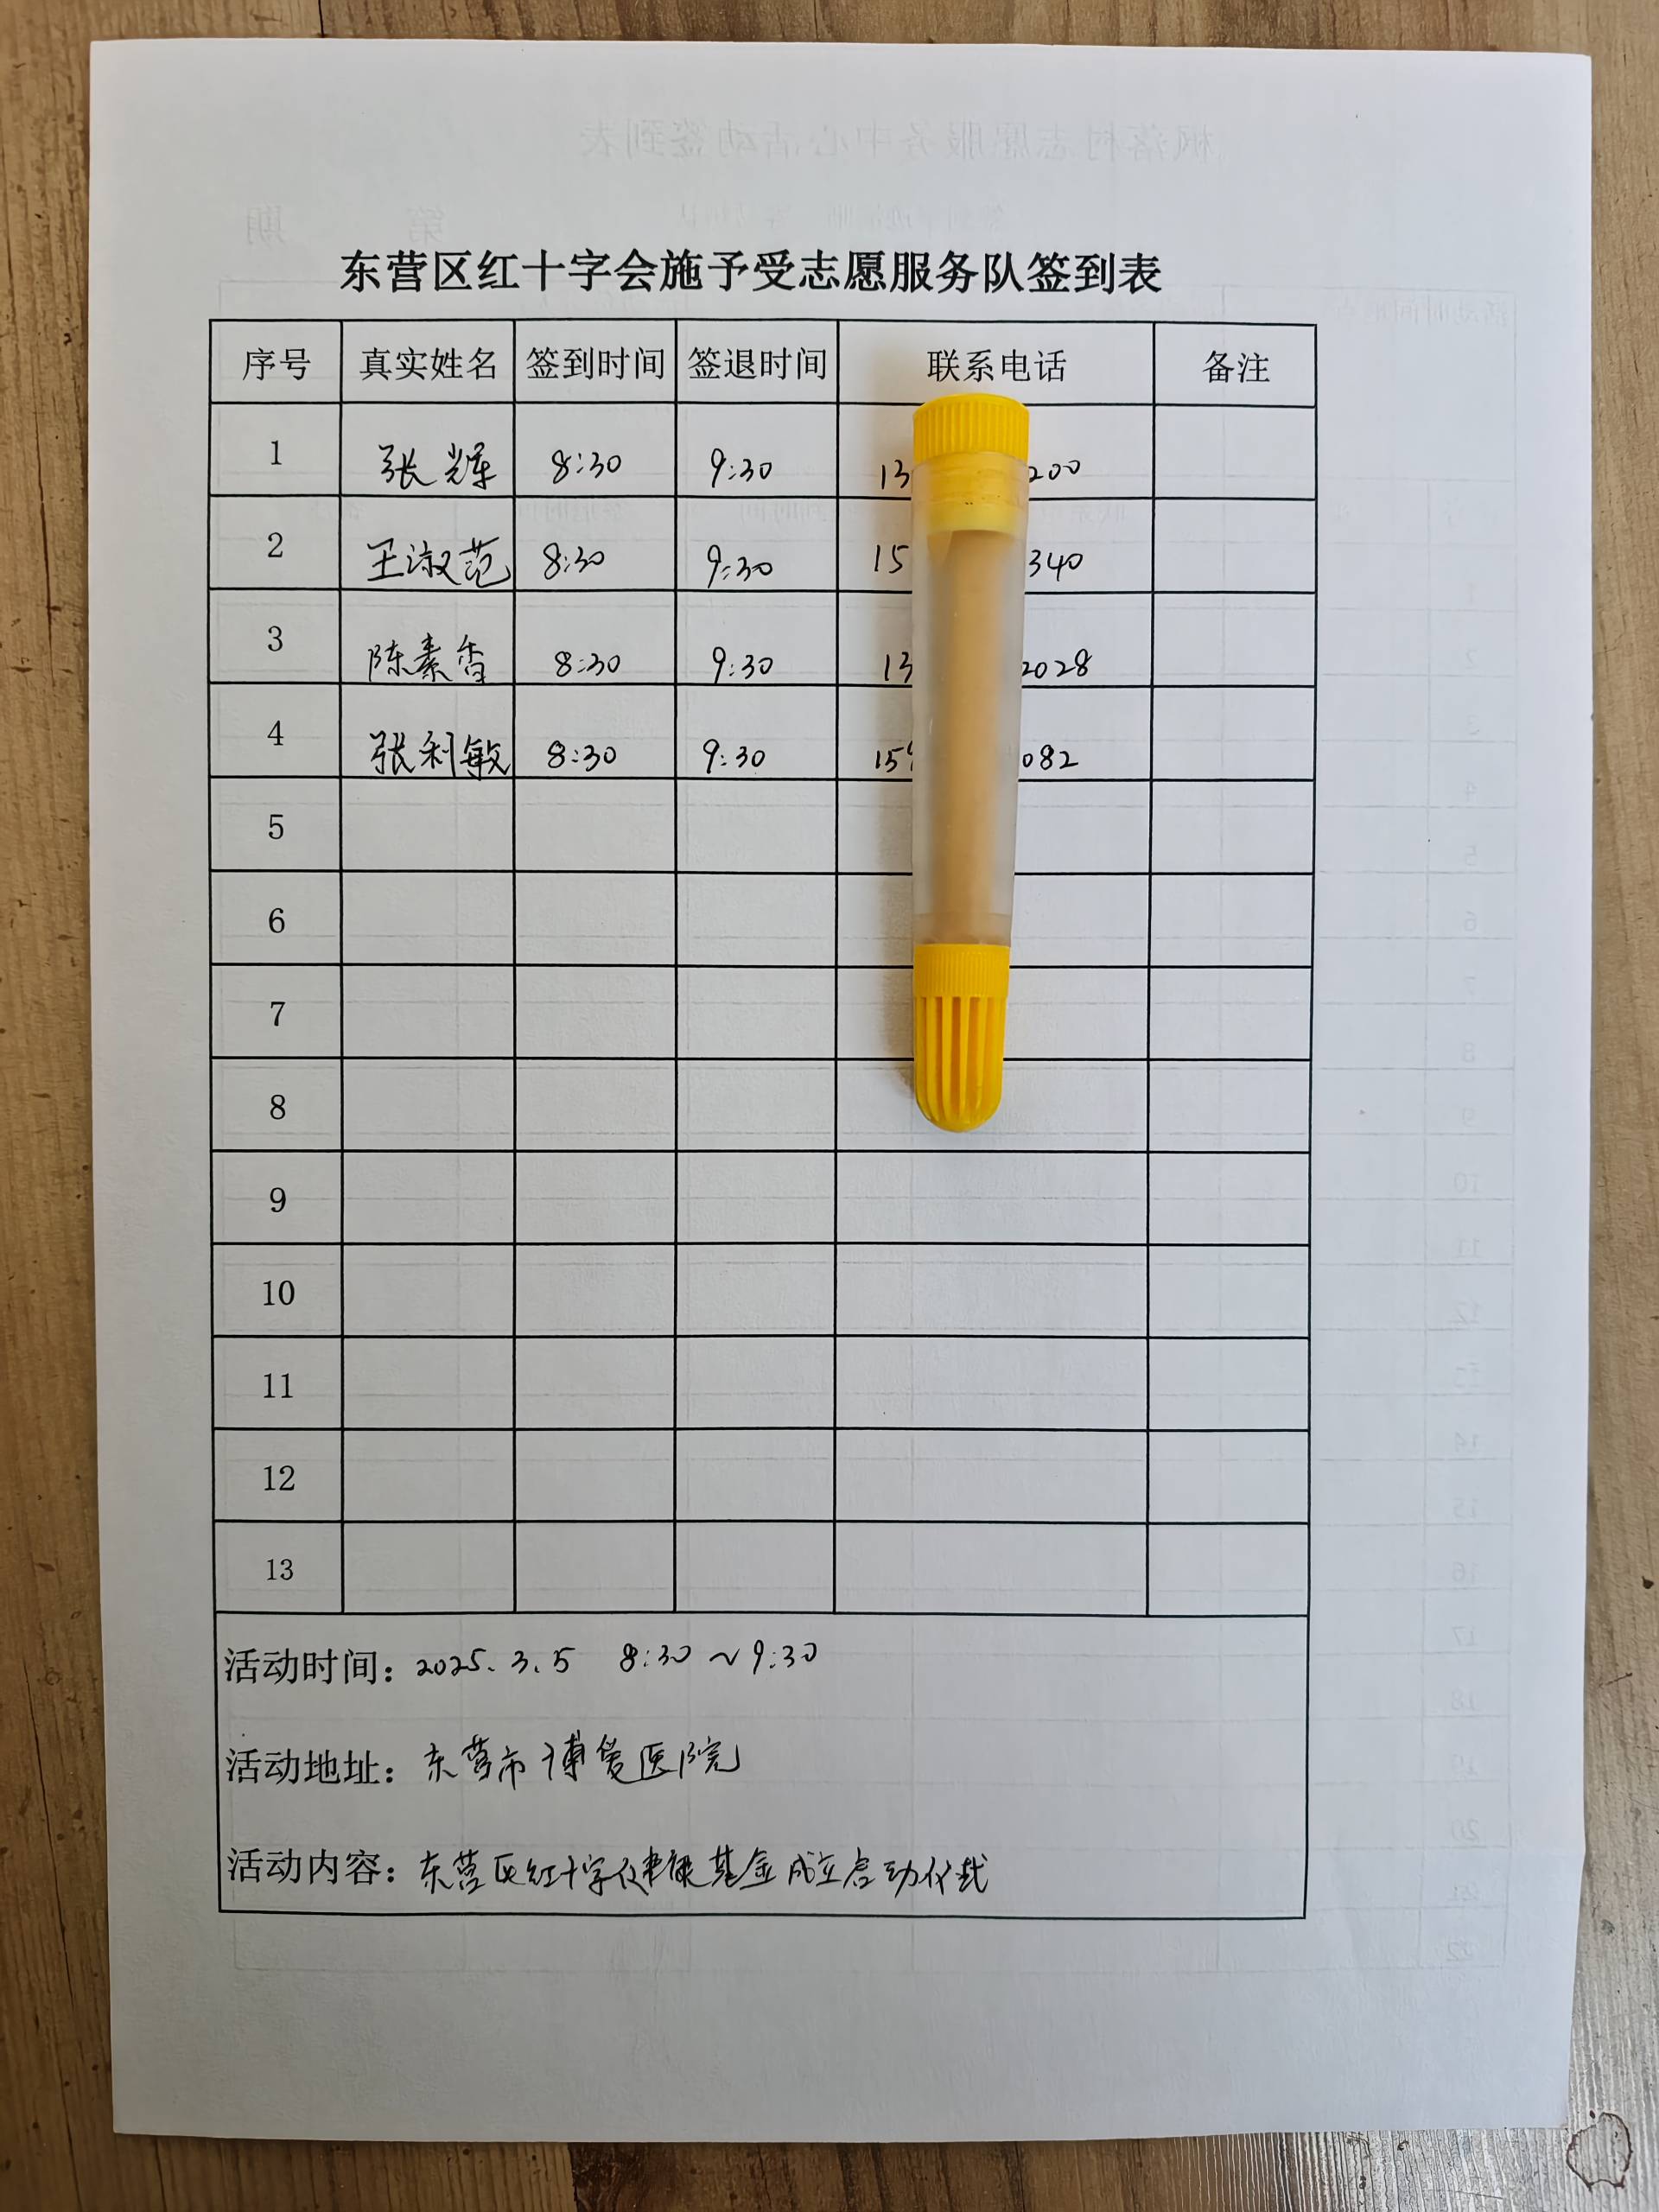 东营区红十字会施予受志愿服务队签到表
序号 真实姓名 签到时间 签退时间 联系电话 备注
1 张辉 8:30 9:30 13 200
2 王淑范 8:30 9:30 15 340
3 陈素香 8:30 9:30 13 2028
4 张利敏 8:30 9:30 159 082
5
6
7
8
9
10
11
12
13
活动时间：2025.3.5 8:30~9:30
活动地址：东营市博爱医院
活动内容：东营区红十字健康基金成立启动仪式